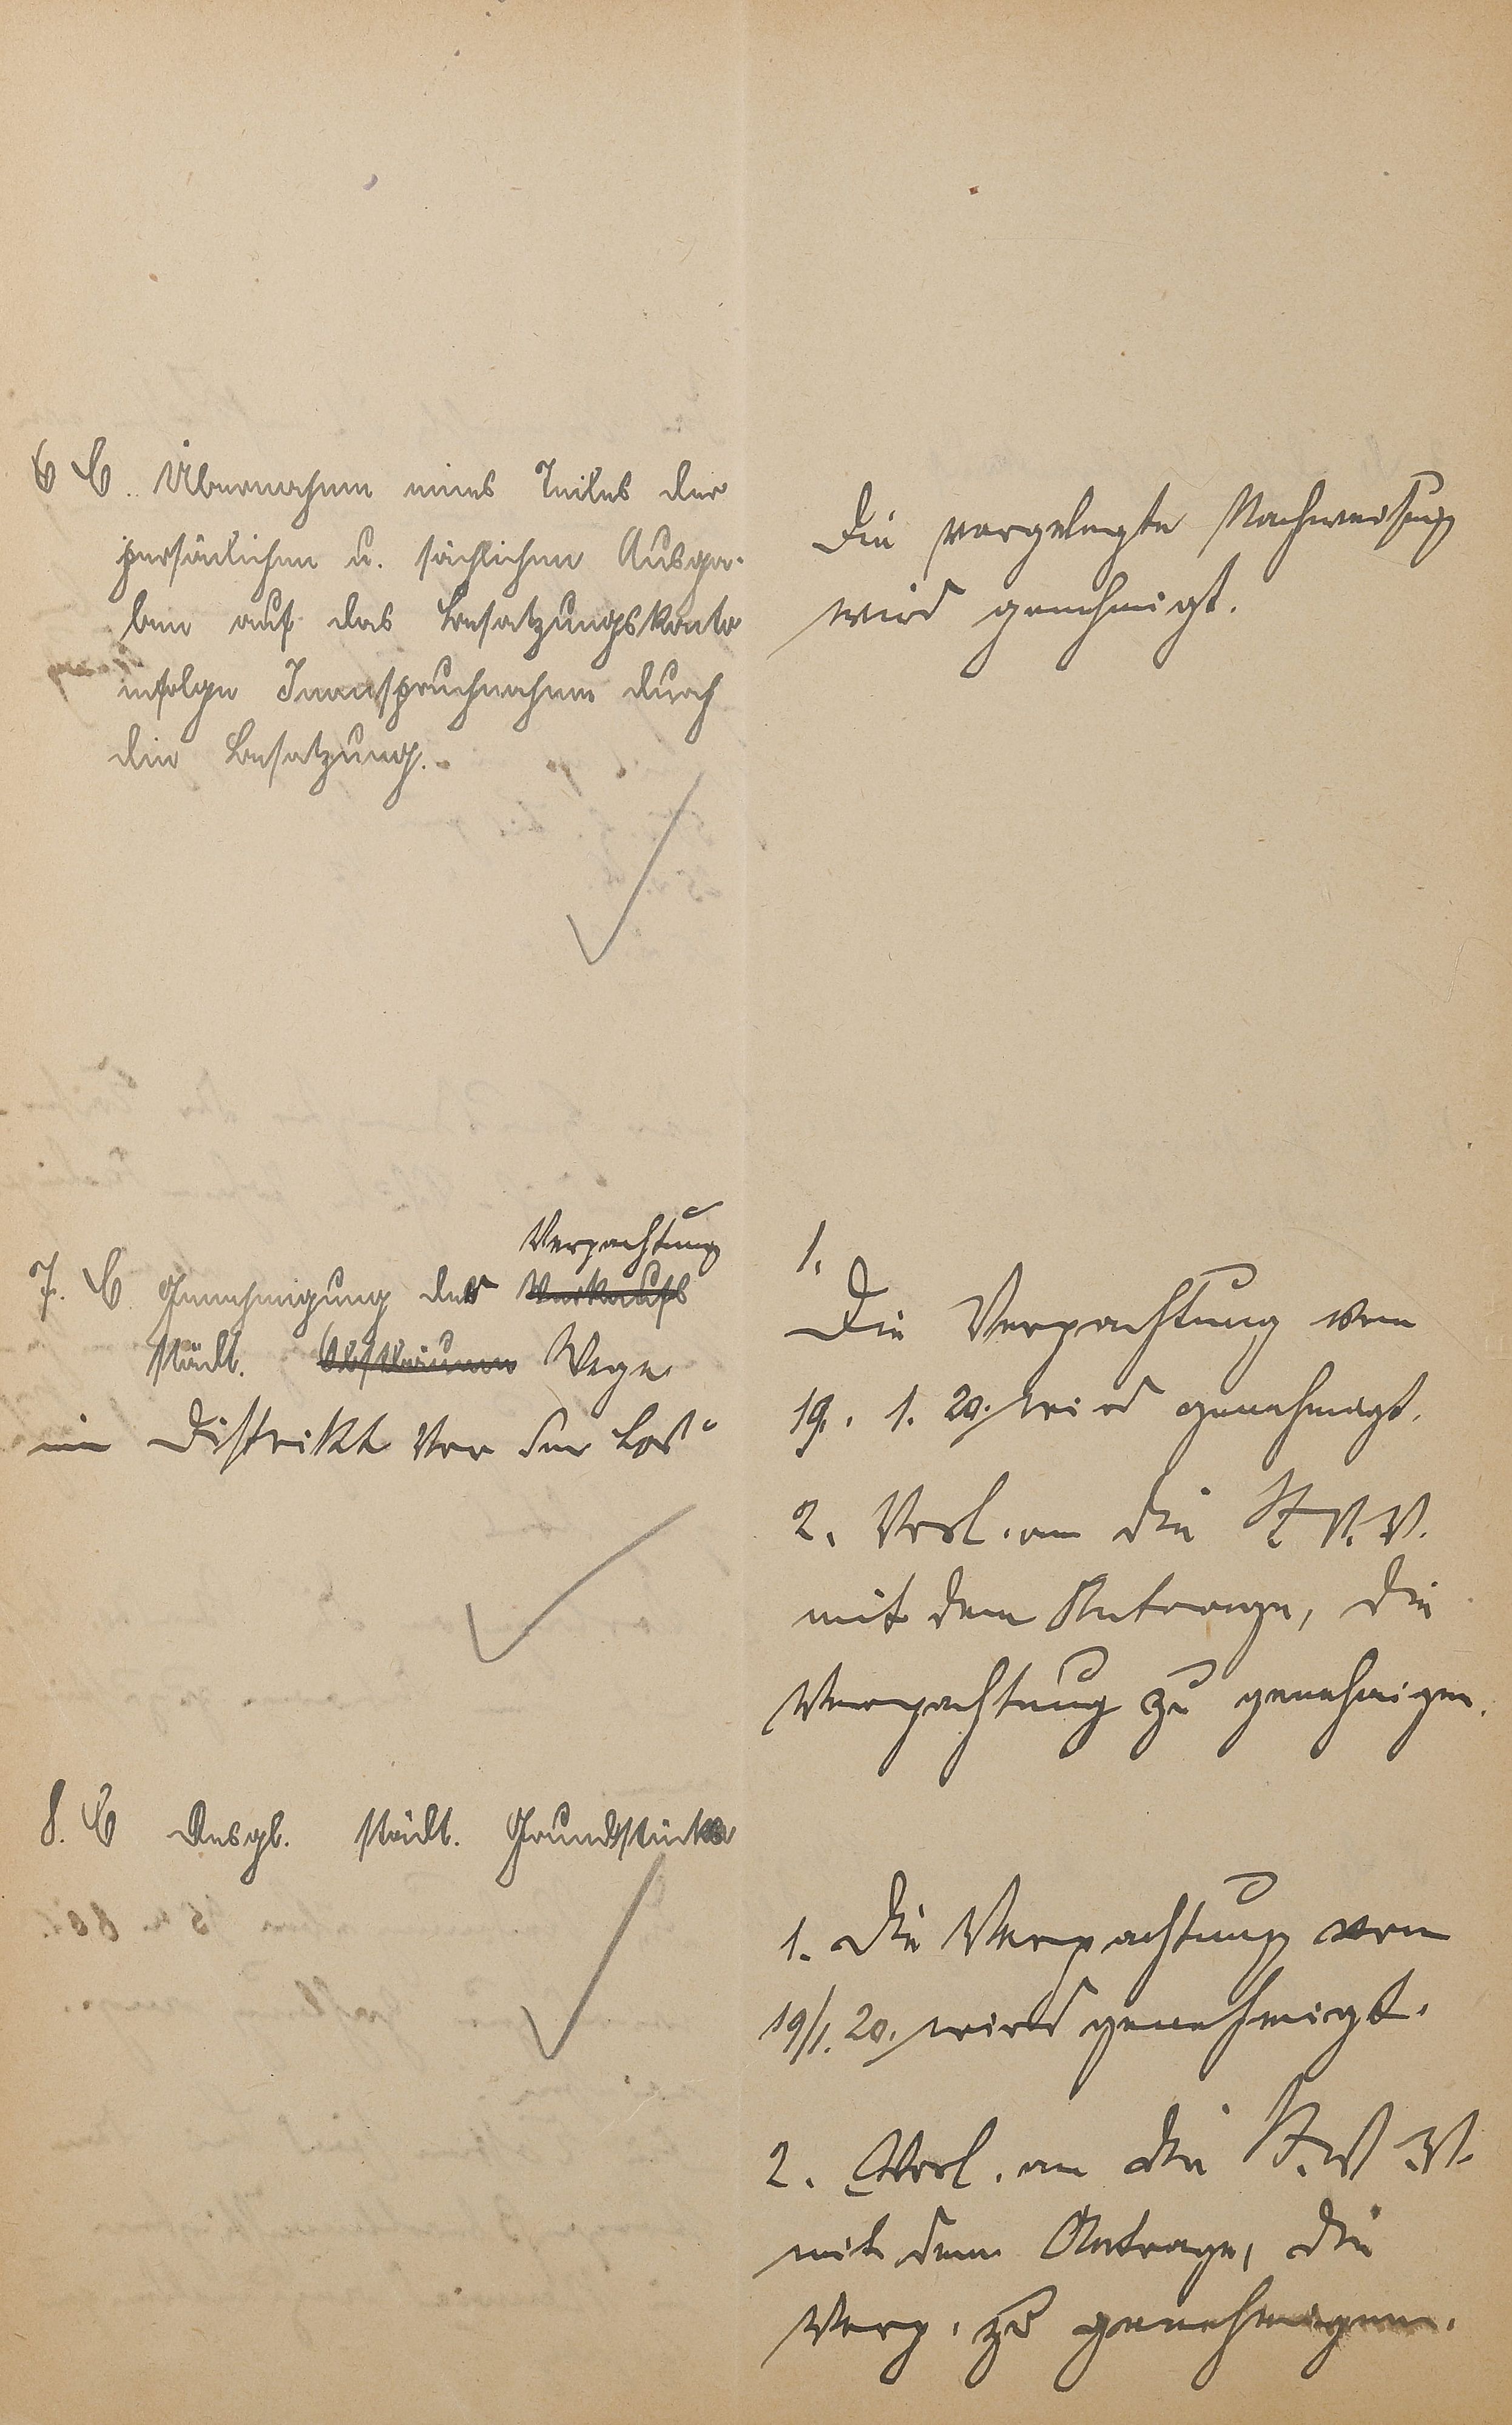 6 C. Übernahme eines Teiles der
persönlichen u. sächlichen Ausga-
ben auf das Besatzungskonto
infolge Inanspruchnahme durch
die Besatzung.
Die vorgelegte Nachweisung
wird genehmigt.
Verpachtung
7. C Genehmigung der Verkaufs
städt. Obstbäume Wege
im Distrikt Vor der
8. C Desgl. städt. Grundstücke
1.
Die Verpachtung vom
19. 1. 20. wird genehmigt.
2. Vorl. an die St. V. V.
mit dem Antrage, die
Verpachtung zu genehmigen.
1. Die Verpachtung vom
19/1. 20. wird genehmigt.
2. Vorl. an die St. V. V.
mit dem Antrage, die
Verp. zu genehmigen.